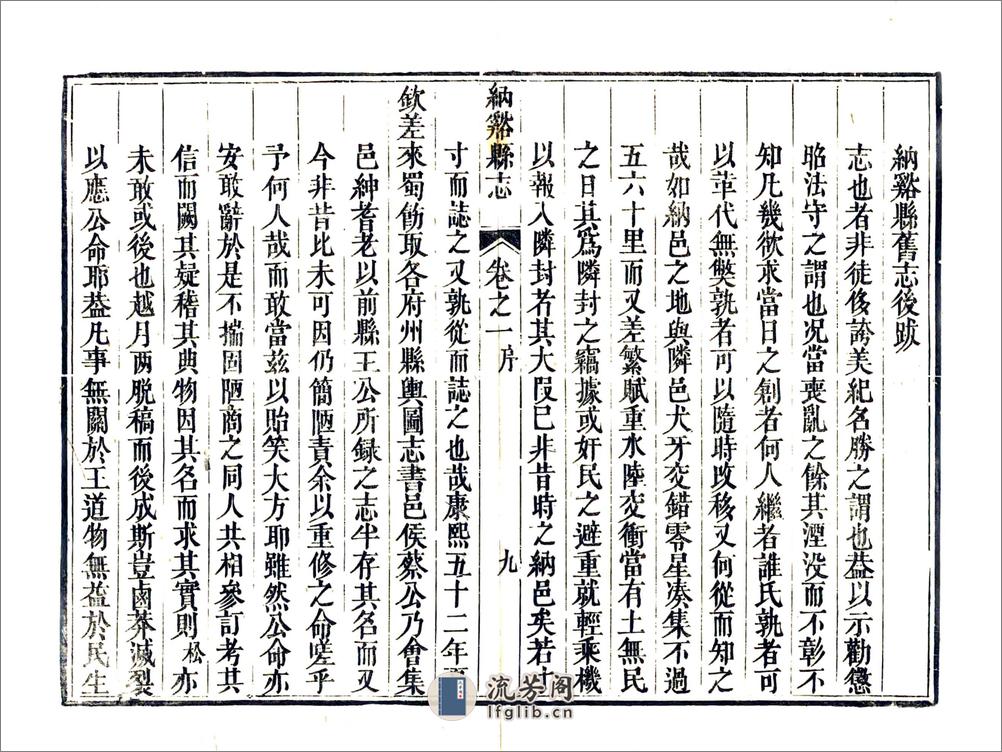 納谿縣舊志後跋
志也者非徒侈誇美紀名勝之謂也葢以示勸懲
昭法守之謂也况當喪亂之餘其湮没而不彰不
知凡幾欲求當日之創者何人繼者誰氏孰者可
以革代無獘孰者可以隨時改移又何從而知之
哉如納邑之地與隣邑犬牙交錯零星凑集不過
五六十里而又差繁賦重水陸交衝當有土無民
之日其爲隣封之竊據或奸民之避重就輕乘機
以報入隣封者其大叚已非昔時之納邑矣若寸
納谿縣志
卷之一序
九
寸而誌之又孰從而誌之也哉康熙五十二年
欽差來蜀飭取各府州縣輿圖志書邑侯蔡公乃會集
邑紳耆老以前縣王公所録之志半存其名而又
今非昔比未可因仍簡陋責余以重修之命嗟乎
予何人哉而敢當兹以貽笑大方耶雖然公命亦
安敢辭於是不揣固陋商之同人共相參訂考其
信而闕其疑稽其典物因其名而求其實則松亦
未敢或後也越月两脱稿而後成斯豈鹵莽滅裂
以應公命耶葢凡事無關於王道物無益於民生
流芳阁
lfglib.cn